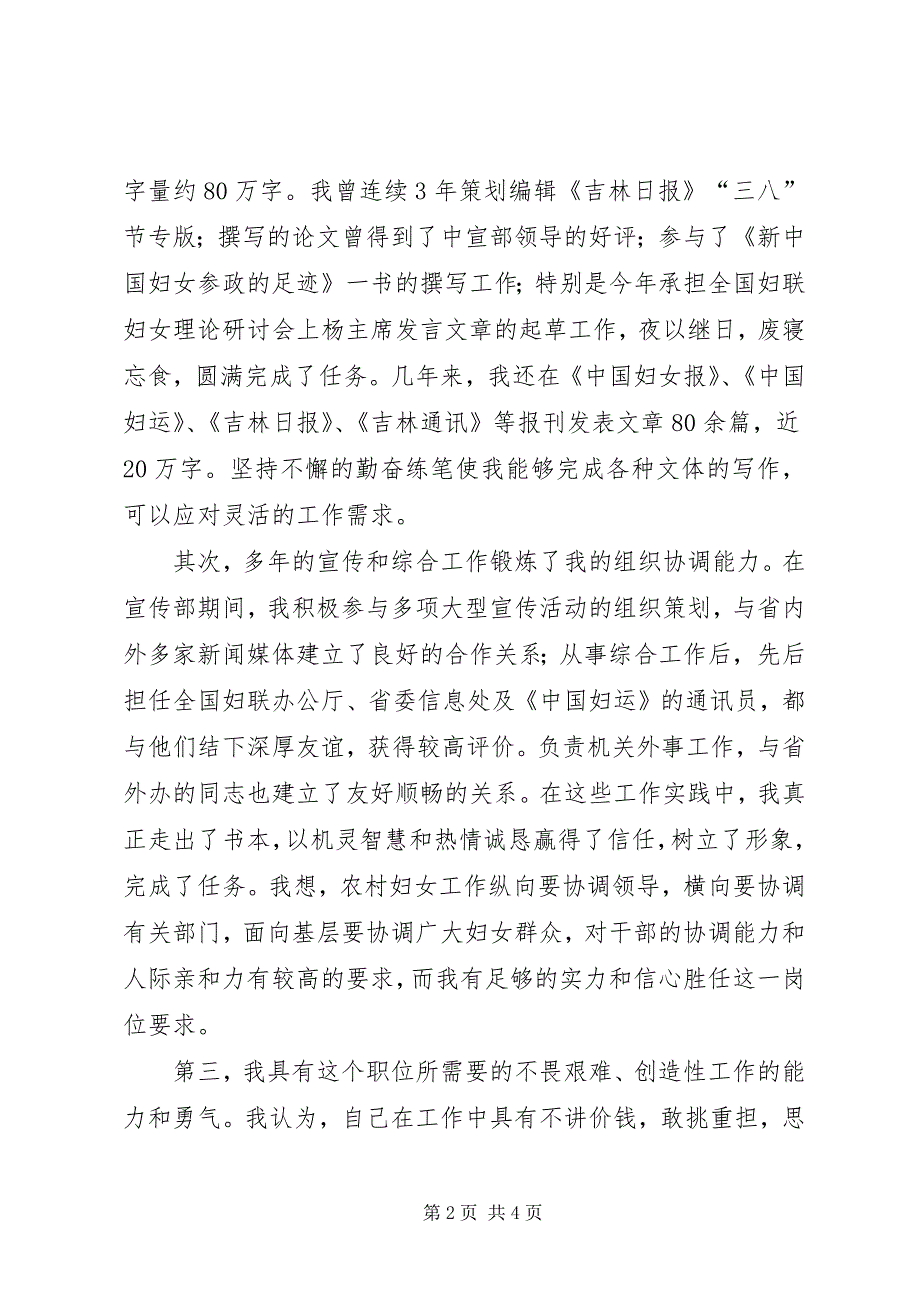 字量约 80 万字。我曾连续 3 年策划编辑《吉林日报》“三八”
节专版；撰写的论文曾得到了中宣部领导的好评；参与了《新中
国妇女参政的足迹》一书的撰写工作；特别是今年承担全国妇联
妇女理论研讨会上杨主席发言文章的起草工作，夜以继日，废寝
忘食，圆满完成了任务。几年来，我还在《中国妇女报》、《中国
妇运》、《吉林日报》、《吉林通讯》等报刊发表文章 80 余篇，近
20 万字。坚持不懈的勤奋练笔使我能够完成各种文体的写作，
可以应对灵活的工作需求。
其次，多年的宣传和综合工作锻炼了我的组织协调能力。在
宣传部期间，我积极参与多项大型宣传活动的组织策划，与省内
外多家新闻媒体建立了良好的合作关系；从事综合工作后，先后
担任全国妇联办公厅、省委信息处及《中国妇运》的通讯员，都
与他们结下深厚友谊，获得较高评价。负责机关外事工作，与省
外办的同志也建立了友好顺畅的关系。在这些工作实践中，我真
正走出了书本，以机灵智慧和热情诚恳赢得了信任，树立了形象，
完成了任务。我想，农村妇女工作纵向要协调领导，横向要协调
有关部门，面向基层要协调广大妇女群众，对干部的协调能力和
人际亲和力有较高的要求，而我有足够的实力和信心胜任这一岗
位要求。
第三，我具有这个职位所需要的不畏艰难、创造性工作的能
力和勇气。我认为，自己在工作中具有不讲价钱，敢挑重担，思
第 2 页 共 4 页